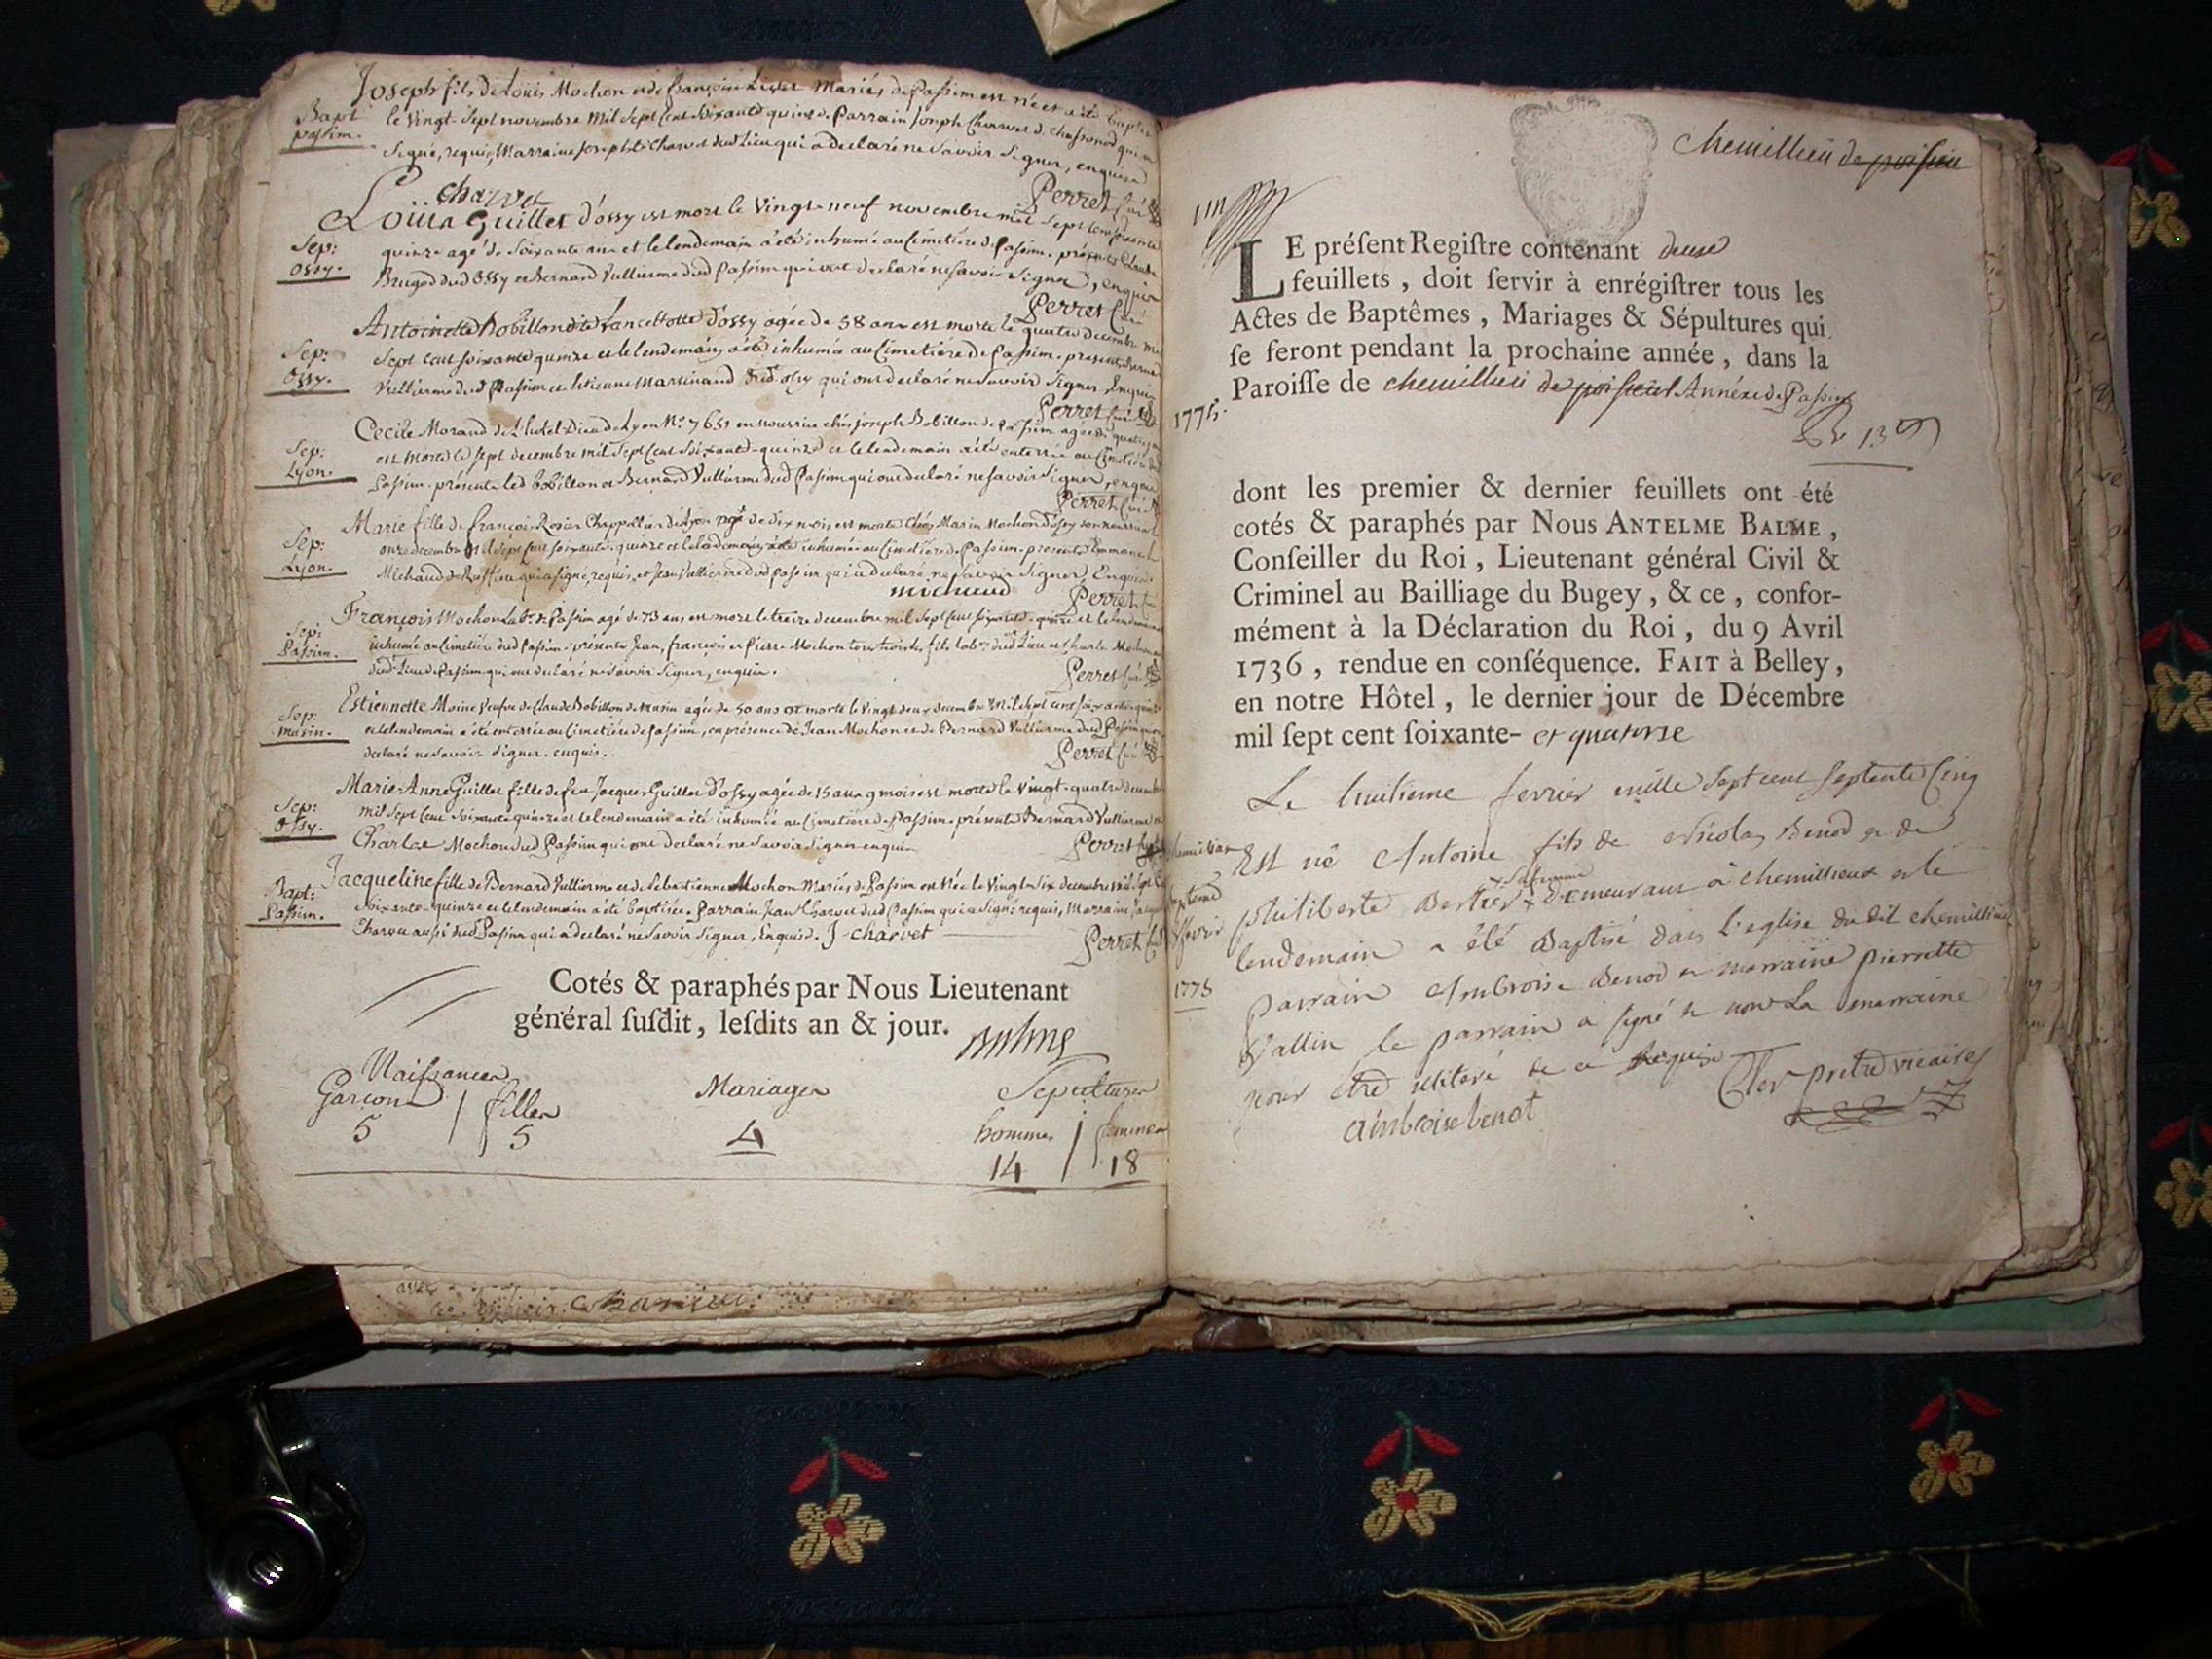 Joseph fils de Louis Mochon et de françoise Mariés de Passim est né et a été baptisé
Bapt
passim.
le vingt-sept novembre mil sept cent soixante quinze. Parrain Joseph Charvet de
signé, requis, Marraine Charvet dud Lieu qui a declaré ne savoir signer, enquise
charvet
Perret Curé
Louis Guillet d'ossy est mort le vingt-neuf novembre mil sept cent soixante
Sep:
ossy.
quinze agé de soixante ans et le lendemain a été inhumé au Cimetiére de Passim. présents Claude
Brugod dud Ossy et Bernard Vullierme dud Passim qui ont declaré ne savoir signer, enquis
Perret Curé
Antoinette Bobillon dite Lancellotte d'ossy agée de 58 ans est morte le quatre decembre mil
Sep:
Ossy.
sept cent soixante quinze et le lendemain a été inhumée au Cimetiére de Passim. présents Bernard
Vullierme dud Passim et Etienne Martinand dud ossy qui ont declaré ne savoir signer, Enquis
Perret Curé
Cecile Morand de l'hotel-Dieu de Lyon N.º 7651 en nourrice chés Joseph Bobillon de Passim agée de
Sep:
Lyon.
est morte le sept decembre mil sept cent soixante-quinze et le lendemain a été enterrée au Cimetiére de
Passim. présents led bobillon et Bernard Vullierme dud Passim qui ont declaré ne savoir signer, enquis
Perret Curé
Marie fille de françois Rosier Chappellier de Lyon agé de dix mois est morte chés Marin Mochon d'ossy son nourricier
Sep:
Lyon.
onze decembre mil sept cent soixante-quinze et le lendemain a été inhumée au Cimetiére de Passim. présents Emmanuel
Michaud de Ruffieu qui a signé, requis, et Jean Vullierme dud Passim qui a declaré ne savoir signer, Enquis.
michaud
Perret Curé
François Mochon Lab.r de Passim agé de 73 ans est mort le treize decembre mil sept cent soixante-quinze et le lendemain
Sep:
Passim.
inhumé au Cimetiére dud Passim. présents Jean, françois et Pierre Mochon tous trois ses fils dud Lieu et Charles Mochon
dud Lieu de Passim qui ont declaré ne savoir signer, enquis.
Perret Curé
Estiennette Moine Veufve de Claude Bobillon de Marin agée de 50 ans est morte le vingt deux decembre mil sept cent soixante-quinze
Sep:
Marin.
et le lendemain a été enterrée au Cimetiére de Passim, en présence de Jean Mochon et de Bernard Vullierme dud Passim qui ont
declaré ne savoir signer. enquis.
Perret Curé
Marie-Anne Guillet fille de feu Jacques Guillet d'ossy agée de 15 ans 9 mois est morte le vingt-quatre decembre
Sep:
Ossy.
mil sept cent soixante quinze et le lendemain a été inhumée au Cimetiére de Passim. présents Bernard Vullierme et
Charles Mochon dud Passim qui ont declaré ne savoir signer enquis
Perret Curé
Jacqueline fille de Bernard Vullierme et de Sébastienne Mochon Mariés de Passim est Née le vingt-six decembre mil sept cent
Bapt:
Passim.
soixante-quinze et le lendemain a été baptisée. Parrain Jean Charvet dud Passim qui a signé requis, Marraine
Charvet aussi dud Passim qui a declaré ne savoir signer, Enquise. J-charvet
Perret Curé
Cotés & paraphés par Nous Lieutenant
général ſuſdit, leſdits an & jour.
Balme
Naissances
Garçons / filles
5 5
Mariages
4
Sepultures
hommes / femmes
14 18
chemillieu de poisieu
LE préſent Regiſtre contenant deux
feuillets, doit ſervir à enrégiſtrer tous les
Actes de Baptêmes, Mariages & Sépultures qui
ſe feront pendant la prochaine année, dans la
Paroiſſe de chemillieu de poisieu Annéxe de Passim
1775.
dont les premier & dernier feuillets ont été
cotés & paraphés par Nous ANTELME BALME,
Conſeiller du Roi, Lieutenant général Civil &
Criminel au Bailliage du Bugey, & ce, confor-
mément à la Déclaration du Roi, du 9 Avril
1736, rendue en conſéquence. FAIT à Belley,
en notre Hôtel, le dernier jour de Décembre
mil ſept cent ſoixante- et quatorze
Le huitieme fevrier mille sept cent septante cinq
est né Antoine fils de Nicolas Benod et de
sa femme
philiberte Berthet + Demeurant à chemillieux et le
lendemain a été Baptisé dans l'eglise du dit chemillieu
1775
parrain Ambroise Benod et marraine pierrette
Vallin le parrain a signé et non La marraine
pour être illiteré de ce Requise
Cler pretre vicaire
ambroise benot